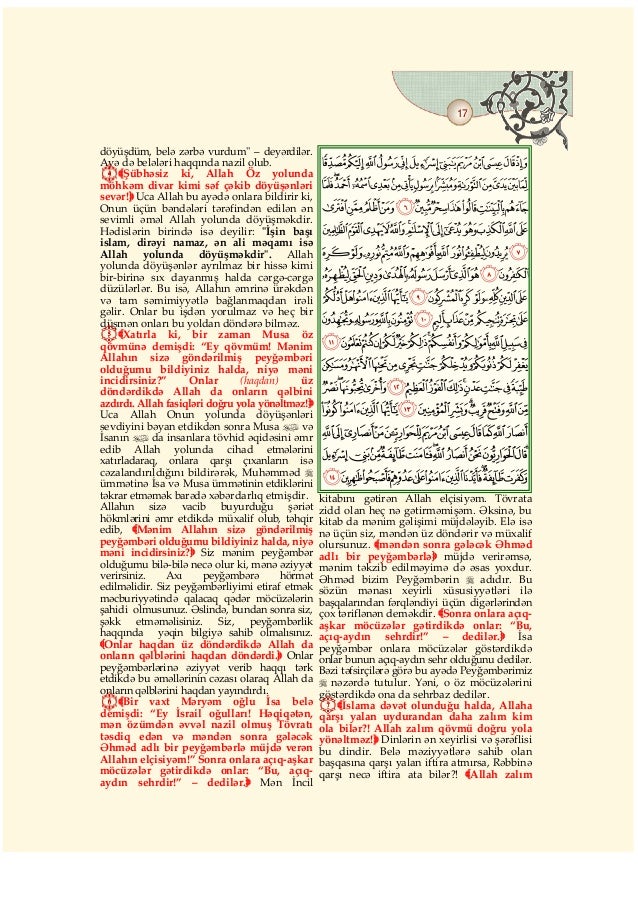 17
döyüşdüm, belə zərbə vurdum" – deyərdilər.
Ayə də belələri haqqında nazil olub.
﴾Şübhəsiz ki, Allah Öz yolunda
möhkəm divar kimi səf çəkib döyüşənləri
sevər!﴿ Uca Allah bu ayədə onlara bildirir ki,
Onun üçün bəndələri tərəfindən edilən ən
sevimli əməl Allah yolunda döyüşməkdir.
Hədislərin birində isə deyilir: "İşin başı
islam, dirəyi namaz, ən ali məqamı isə
Allah yolunda döyüşməkdir". Allah
yolunda döyüşənlər ayrılmaz bir hissə kimi
bir-birinə sıx dayanmış halda cərgə-cərgə
düzülərlər. Bu isə, Allahın əmrinə ürəkdən
və tam səmimiyyətlə bağlanmaqdan irəli
gəlir. Onlar bu işdən yorulmaz və heç bir
düşmən onları bu yoldan döndərə bilməz.
﴾Xatırla ki, bir zaman Musa öz
qövmünə demişdi: “Ey qövmüm! Mənim
Allahın sizə göndərilmiş peyğəmbəri
olduğumu bildiyiniz halda, niyə məni
incidirsiniz?” Onlar (haqdan) üz
döndərdikdə Allah da onların qəlbini
azdırdı. Allah fasiqləri doğru yola yönəltməz!﴿
Uca Allah Onun yolunda döyüşənləri
sevdiyini bəyan etdikdən sonra Musa və
İsanın da insanlara tövhid əqidəsini əmr
edib Allah yolunda cihad etmələrini
xatırladaraq, onlara qarşı çıxanların isə
cəzalandırıldığını bildirərək, Muhəmməd ﷺ
ümmətinə İsa və Musa ümmətinin etdiklərini
təkrar etməmək barədə xəbərdarlıq etmişdir.
Allahın sizə vacib buyurduğu şəriət
hökmlərini əmr etdikdə müxalif olub, təhqir
edib, ﴾Mənim Allahın sizə göndərilmiş
peyğəmbəri olduğumu bildiyiniz halda, niyə
məni incidirsiniz?﴿ Siz mənim peyğəmbər
olduğumu bilə-bilə necə olur ki, mənə əziyyət
verirsiniz. Axı peyğəmbərə hörmət
edilməlidir. Siz peyğəmbərliyimi etiraf etmək
məcburiyyətində qalacaq qədər möcüzələrin
şahidi olmusunuz. Əslində, bundan sonra siz,
şəkk etməməlisiniz. Siz, peyğəmbərlik
haqqında yəqin bilgiyə sahib olmalısınız.
﴾Onlar haqdan üz döndərdikdə Allah da
onların qəlblərini haqdan döndərdi.﴿ Onlar
peyğəmbərlərinə əziyyət verib haqqı tərk
etdikdə bu əməllərinin cəzası olaraq Allah da
onların qəlblərini haqdan yayındırdı.
﴾Bir vaxt Məryəm oğlu İsa belə
demişdi: “Ey İsrail oğulları! Həqiqətən,
mən özümdən əvvəl nazil olmuş Tövratı
təsdiq edən və məndən sonra gələcək
Əhməd adlı bir peyğəmbərlə müjdə verən
Allahın elçisiyəm!” Sonra onlara açıq-aşkar
möcüzələr gətirdikdə onlar: “Bu, açıq-
aydın sehrdir!” – dedilər.﴿ Mən İncil
وَإِذْ قَالَ عِيسَى ابْنُ مَرْيَمَ يَبَنِي إِسْرَءِيلَ إِنِّي رَسُولُ اللَّهِ إِلَيْكُم مُّصَدِّقًا
لِّمَا بَيْنَ يَدَيَّ مِنَ التَّوْرَىٰةِ وَمُبَشِّرًا بِرَسُولٍ يَأْتِي مِن بَعْدِي اسْمُهُ أَحْمَدُ فَلَمَّا
جَاءَهُم بِالْبَيِّنَٰتِ قَالُوا هَٰذَا سِحْرٌ مُّبِينٌ ٦ وَمَنْ أَظْلَمُ مِمَّنِ افْتَرَىٰ
عَلَى اللَّهِ الْكَذِبَ وَهُوَ يُدْعَىٰ إِلَى الْإِسْلَٰمِ وَاللَّهُ لَا يَهْدِي الْقَوْمَ الظَّٰلِمِينَ
٧ يُرِيدُونَ لِيُطْفِـُٔوا نُورَ اللَّهِ بِأَفْوَٰهِهِمْ وَاللَّهُ مُتِمُّ نُورِهِ وَلَوْ كَرِهَ
الْكَٰفِرُونَ ٨ هُوَ الَّذِي أَرْسَلَ رَسُولَهُ بِالْهُدَىٰ وَدِينِ الْحَقِّ لِيُظْهِرَهُ
عَلَى الدِّينِ كُلِّهِ وَلَوْ كَرِهَ الْمُشْرِكُونَ ٩ يَٰأَيُّهَا الَّذِينَ ءَامَنُوا هَلْ أَدُلُّكُمْ
عَلَىٰ تِجَٰرَةٍ تُنجِيكُم مِّنْ عَذَابٍ أَلِيمٍ ١٠ تُؤْمِنُونَ بِاللَّهِ وَرَسُولِهِ وَتُجَٰهِدُونَ
فِي سَبِيلِ اللَّهِ بِأَمْوَٰلِكُمْ وَأَنفُسِكُمْ ذَٰلِكُمْ خَيْرٌ لَّكُمْ إِن كُنتُمْ تَعْلَمُونَ ١١
يَغْفِرْ لَكُمْ ذُنُوبَكُمْ وَيُدْخِلْكُمْ جَنَّٰتٍ تَجْرِي مِن تَحْتِهَا الْأَنْهَٰرُ وَمَسَٰكِنَ
طَيِّبَةً فِي جَنَّٰتِ عَدْنٍ ذَٰلِكَ الْفَوْزُ الْعَظِيمُ ١٢ وَأُخْرَىٰ تُحِبُّونَهَا نَصْرٌ
مِّنَ اللَّهِ وَفَتْحٌ قَرِيبٌ وَبَشِّرِ الْمُؤْمِنِينَ ١٣ يَٰأَيُّهَا الَّذِينَ ءَامَنُوا كُونُوا
أَنصَارَ اللَّهِ كَمَا قَالَ عِيسَى ابْنُ مَرْيَمَ لِلْحَوَارِيِّينَ مَنْ أَنصَارِي إِلَى اللَّهِ
قَالَ الْحَوَارِيُّونَ نَحْنُ أَنصَارُ اللَّهِ فَـَٔامَنَت طَّائِفَةٌ مِّن بَنِي إِسْرَءِيلَ
وَكَفَرَت طَّائِفَةٌ فَأَيَّدْنَا الَّذِينَ ءَامَنُوا عَلَىٰ عَدُوِّهِمْ فَأَصْبَحُوا ظَٰهِرِينَ ١٤
kitabını gətirən Allah elçisiyəm. Tövrata
zidd olan heç nə gətirməmişəm. Əksinə, bu
kitab da mənim gəlişimi müjdələyib. Elə isə
nə üçün siz, məndən üz döndərir və müxalif
olursunuz. ﴾məndən sonra gələcək Əhməd
adlı bir peyğəmbərlə﴿ müjdə verirəmsə,
mənim təkzib edilməyimə də əsas yoxdur.
Əhməd bizim Peyğəmbərin ﷺ adıdır. Bu
sözün mənası xeyirli xüsusiyyətləri ilə
başqalarından fərqləndiyi üçün digərlərindən
çox təriflənən deməkdir. ﴾Sonra onlara açıq-
aşkar möcüzələr gətirdikdə onlar: “Bu,
açıq-aydın sehrdir!” – dedilər.﴿ İsa
peyğəmbər onlara möcüzələr göstərdikdə
onlar bunun açıq-aydın sehr olduğunu dedilər.
Bəzi təfsirçilərə görə bu ayədə Peyğəmbərimiz
ﷺ nəzərdə tutulur. Yəni, o öz möcüzələrini
göstərdikdə ona da sehrbaz dedilər.
﴾İslama dəvət olunduğu halda, Allaha
qarşı yalan uydurandan daha zalım kim
ola bilər?! Allah zalım qövmü doğru yola
yönəltməz!﴿ Dinlərin ən xeyirlisi və şərəflisi
bu dindir. Belə məziyyətlərə sahib olan
başqasına qarşı yalan iftira atmırsa, Rəbbinə
qarşı necə iftira ata bilər?! ﴾Allah zalım